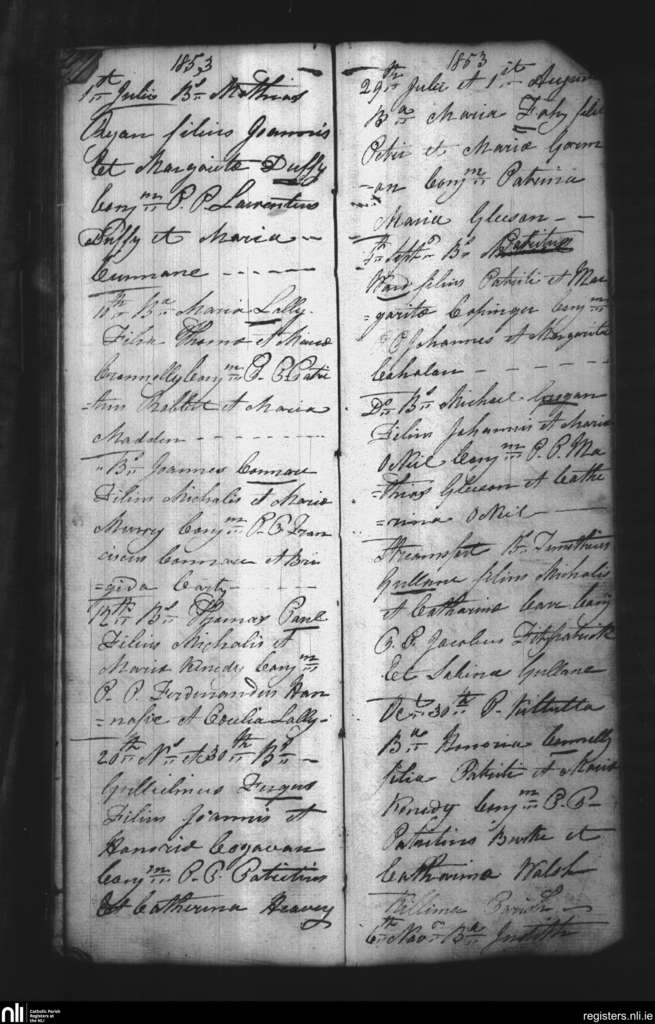 1853
1th Julii Bs Mathias
Ryan filius Joannis
Et Margarita Duffy
Conj m P. P. Laurentius
Duffy et Maria
Cunnane
10th Ba Maria Lally
Filia Thoma et Maria
Crannelly Conj m P. P. Patri
=tius Rabbit et Maria
Madden
" Bs Joannes
Filius Michalis et Maria
Murry Conj m P. P. Fran
ciscus et Bri
=gida Carty
12th Bs Thomas
Filius Michalis et
Maria Kenedy Conj m
P. P. Ferdinandus Han
=nafie et Cecelia Lally
20th Ns et 30th Bs
Gulielmus Fergus
Filius Joannis et
Honoria Cogavan
Conj m P. P. Patritius
Et Catherina Heavey
1853
29th Julii et 1st August
Ba Maria Fahy filia
Petri et Maria Gorm
=an Conj m Patrina
Maria Gleeson
Septr Bs Patritius
Ward filius Patritii et Mar
=garita Conj m
P. P. Johannes et Margarita
Cahalan
Do Bs Michael
Filius Johannis et Maria
ONeil Conj m P. P. Ma
=thias Gleeson et Cathe
=rina ONeil
Bs Timotheus
Gullane filius Michalis
et Catharina Conj
P. P. Jacobus Fitzpatrick
Et Sabina Gullane
Oct 30th P. Kiltulla
Ba Honoria Connelly
filia Patritii et Maria
Kenedy Conj m P. P.
Patritius Burke et
Catharina Walsh
Killimer Parish
6th Novr Ba Judith
nli
Catholic Parish
Registers at
the NLI
registers.nli.ie